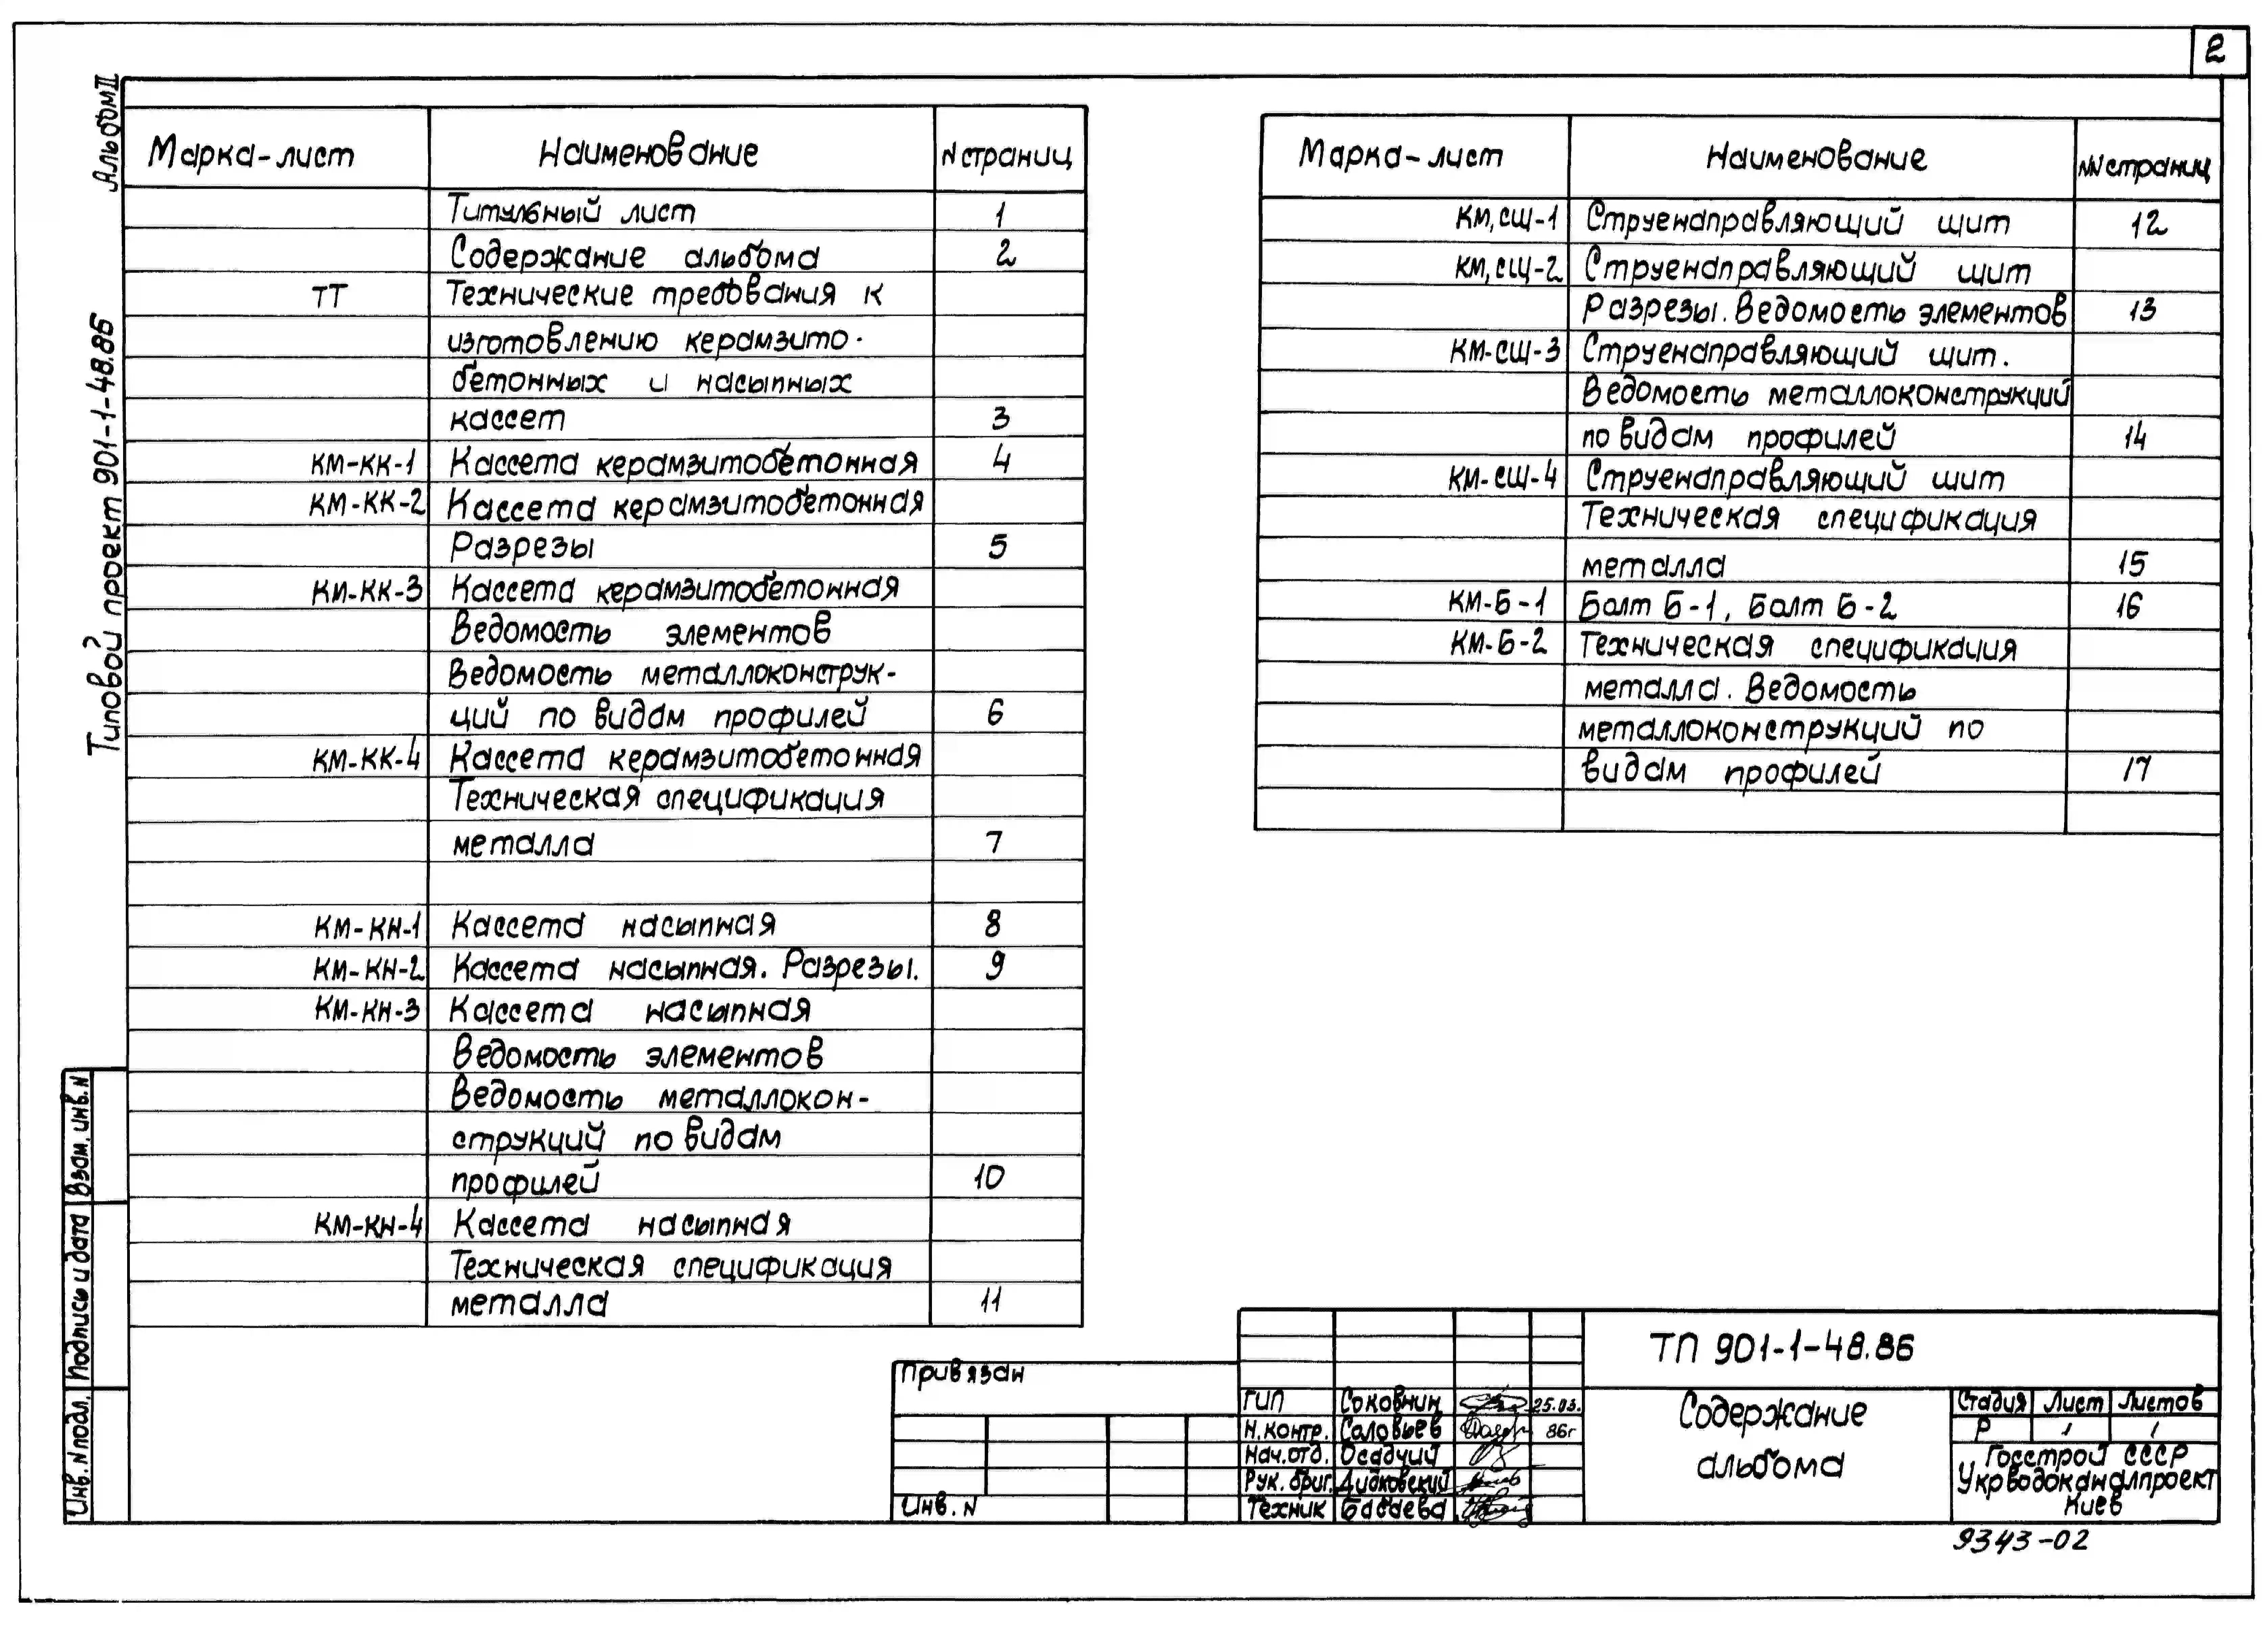 2
Альбом II
Типовой проект 901-1-48.86
Марка-лист Наименование N страниц
Титульный лист 1
Содержание альбома 2
ТТ Технические требования к
изготовлению керамзито-
бетонных и насыпных
кассет 3
КМ-КК-1 Кассета керамзитобетонная 4
КМ-КК-2 Кассета керамзитобетонная
Разрезы 5
КМ-КК-3 Кассета керамзитобетонная
Ведомость элементов
Ведомость металлоконструк-
ций по видам профилей 6
КМ-КК-4 Кассета керамзитобетонная
Техническая спецификация
металла 7
КМ-КН-1 Кассета насыпная 8
КМ-КН-2 Кассета насыпная. Разрезы. 9
КМ-КН-3 Кассета насыпная
Ведомость элементов
Ведомость металлокон-
струкций по видам
профилей 10
КМ-КН-4 Кассета насыпная
Техническая спецификация
металла 11
Марка-лист Наименование NN страниц
КМ,СЩ-1 Струенаправляющий щит 12
КМ,СЩ-2 Струенаправляющий щит
Разрезы. Ведомость элементов 13
КМ-СЩ-3 Струенаправляющий щит.
Ведомость металлоконструкций
по видам профилей 14
КМ-СЩ-4 Струенаправляющий щит
Техническая спецификация
металла 15
КМ-Б-1 Болт Б-1, Болт Б-2 16
КМ-Б-2 Техническая спецификация
металла. Ведомость
металлоконструкций по
видам профилей 17
Взам. инв. N
Подпись и дата
Инв. N подл.
Привязан
Инв. N
ТП 901-1-48.86
ГИП Соковнин 25.03.
Н.контр. Соловьев 86г
Нач.отд. Осадчий
Рук. бриг. Дидковский
Техник Бабаева
Содержание
альбома
Стадия Лист Листов
Р 1 1
Госстрой СССР
Укрводоканалпроект
Киев
9343-02